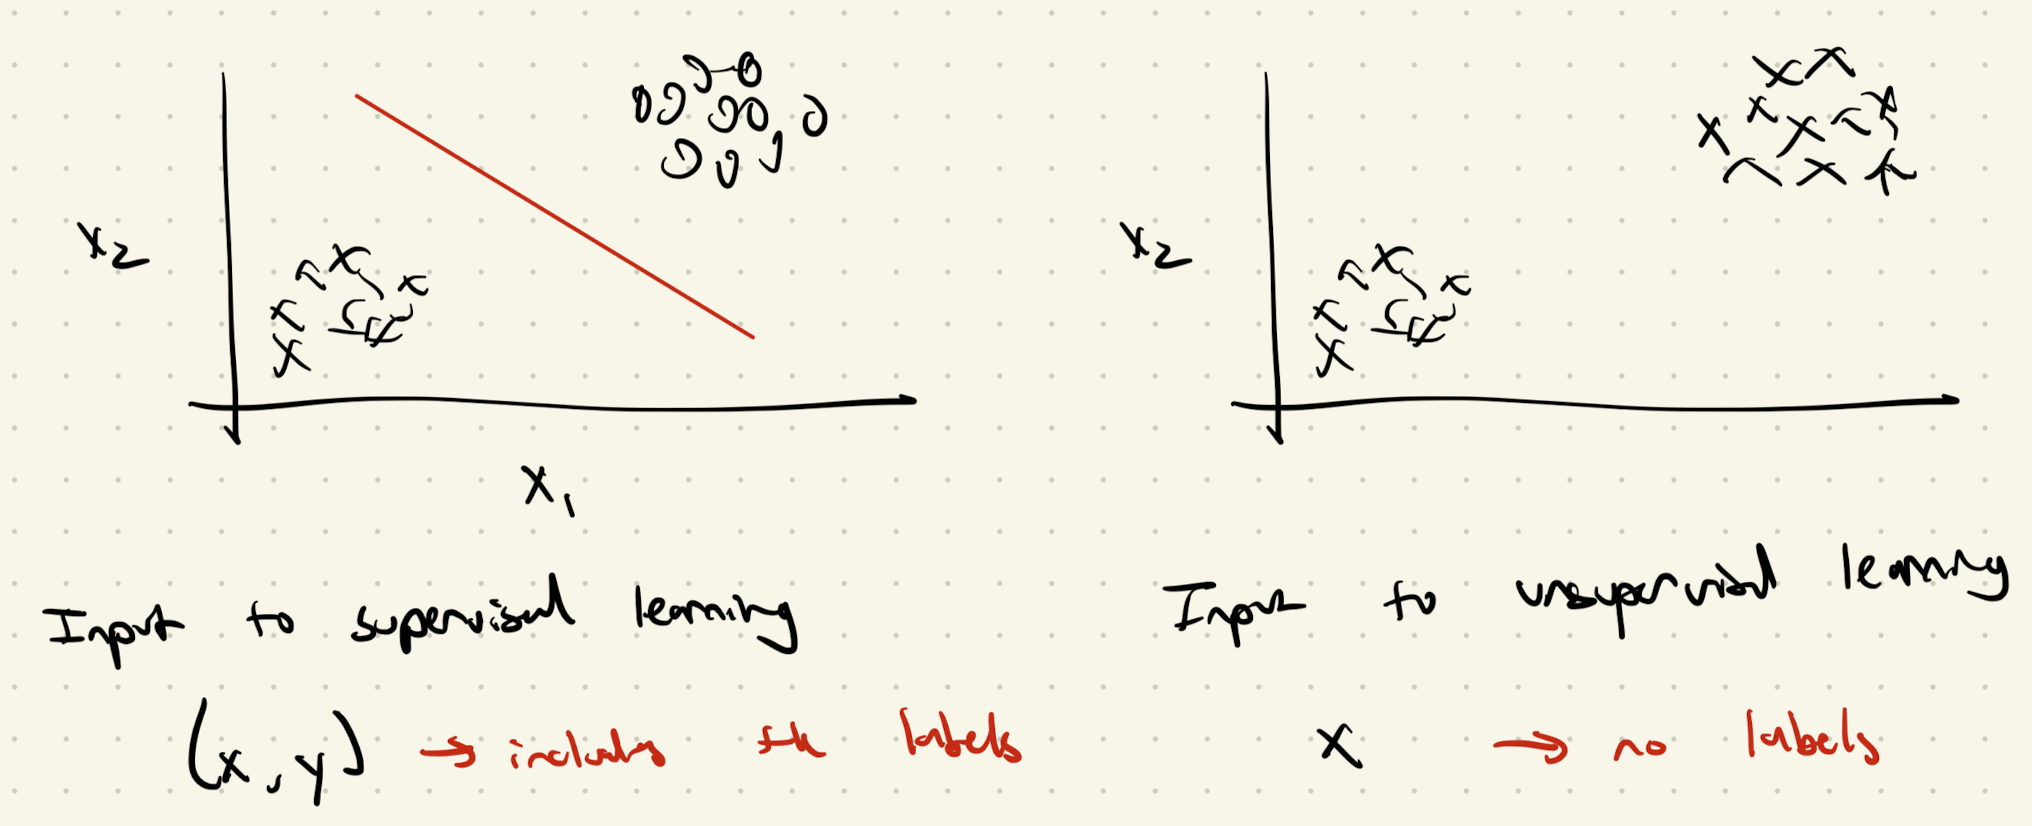 x2
x1
Input to supervised learning
(x, y) → includes the labels
x2
Input to unsupervised learning
x → no labels